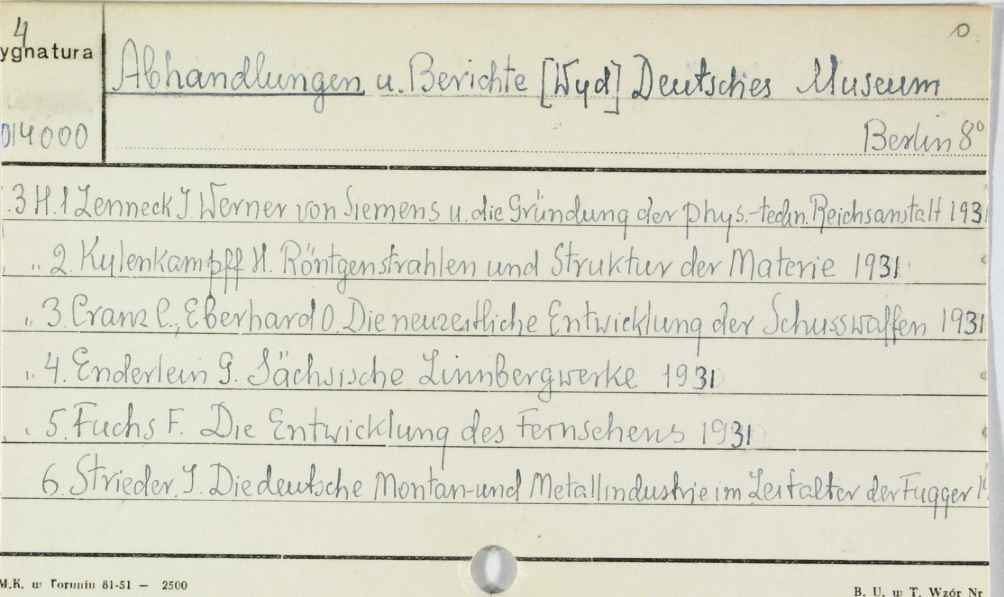 4
ygnatura
014000
O
Abhandlungen u. Berichte [Wyd] Deutsches Museum
Berlin 8°
.3 H.1 Zenneck J Werner von Siemens u. die Gründung der phys.-techn. Reichsanstalt 1931
„ 2. Kulenkampff H. Röntgenstrahlen und Struktur der Materie 1931
„ 3. Cranz C., Eberhard O. Die neuzeitliche Entwicklung der Schusswaffen 1931
„ 4. Enderlein G. Sächsische Zinnbergwerke 1931
„ 5. Fuchs F. Die Entwicklung des Fernsehens 1931
6. Strieder. J. Die deutsche Montan-und Metallindustrie im Zeitalter der Fugger
M.K. w Toruniu 81-51 — 2500
B. U. w T. Wzór Nr